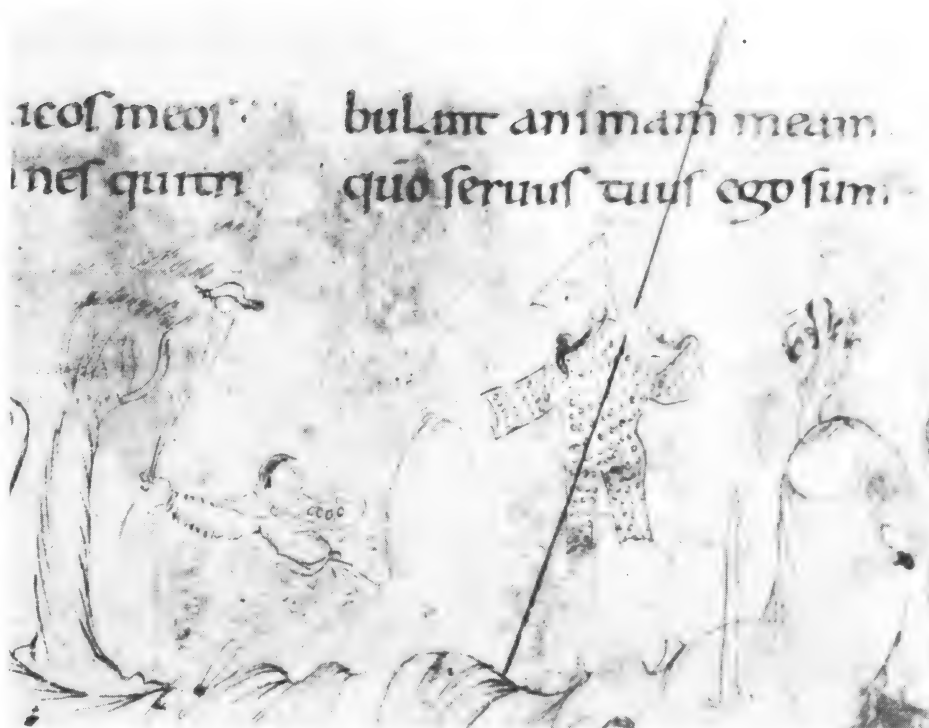 icos meos
nes qui tri
bulant animam meam
quō seruus tuus ego sum.